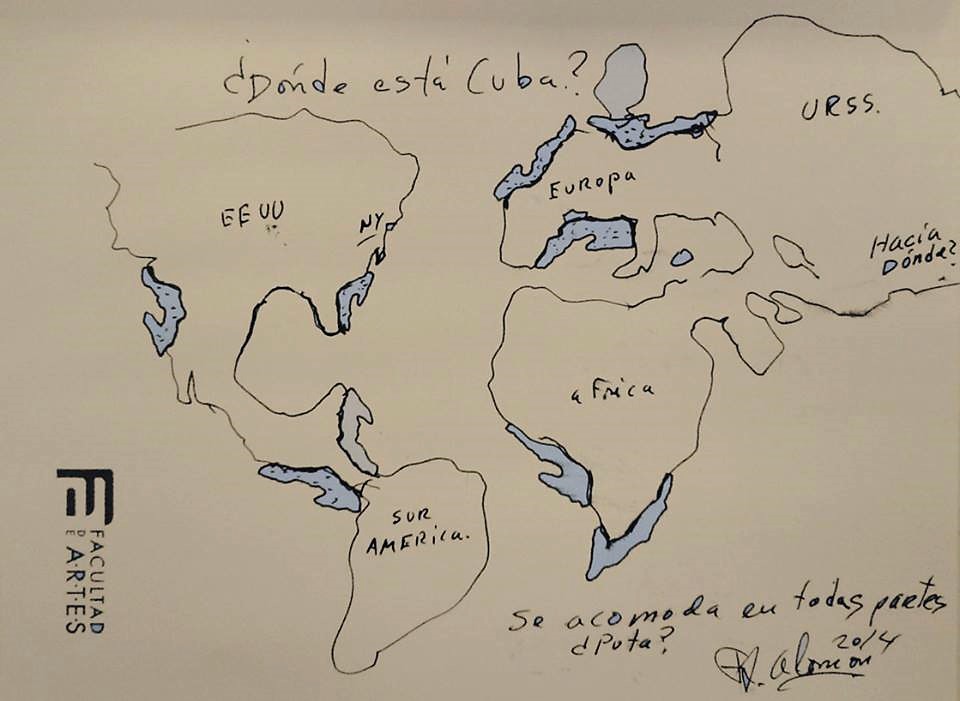 ¿Dónde está Cuba?
URSS.
EE UU
NY
Europa
Hacia
Dónde?
africa
SUR
AMERICA.
FACULTAD
DE
A·R·T·E·S
Se acomoda en todas partes
¿Puta?
2014